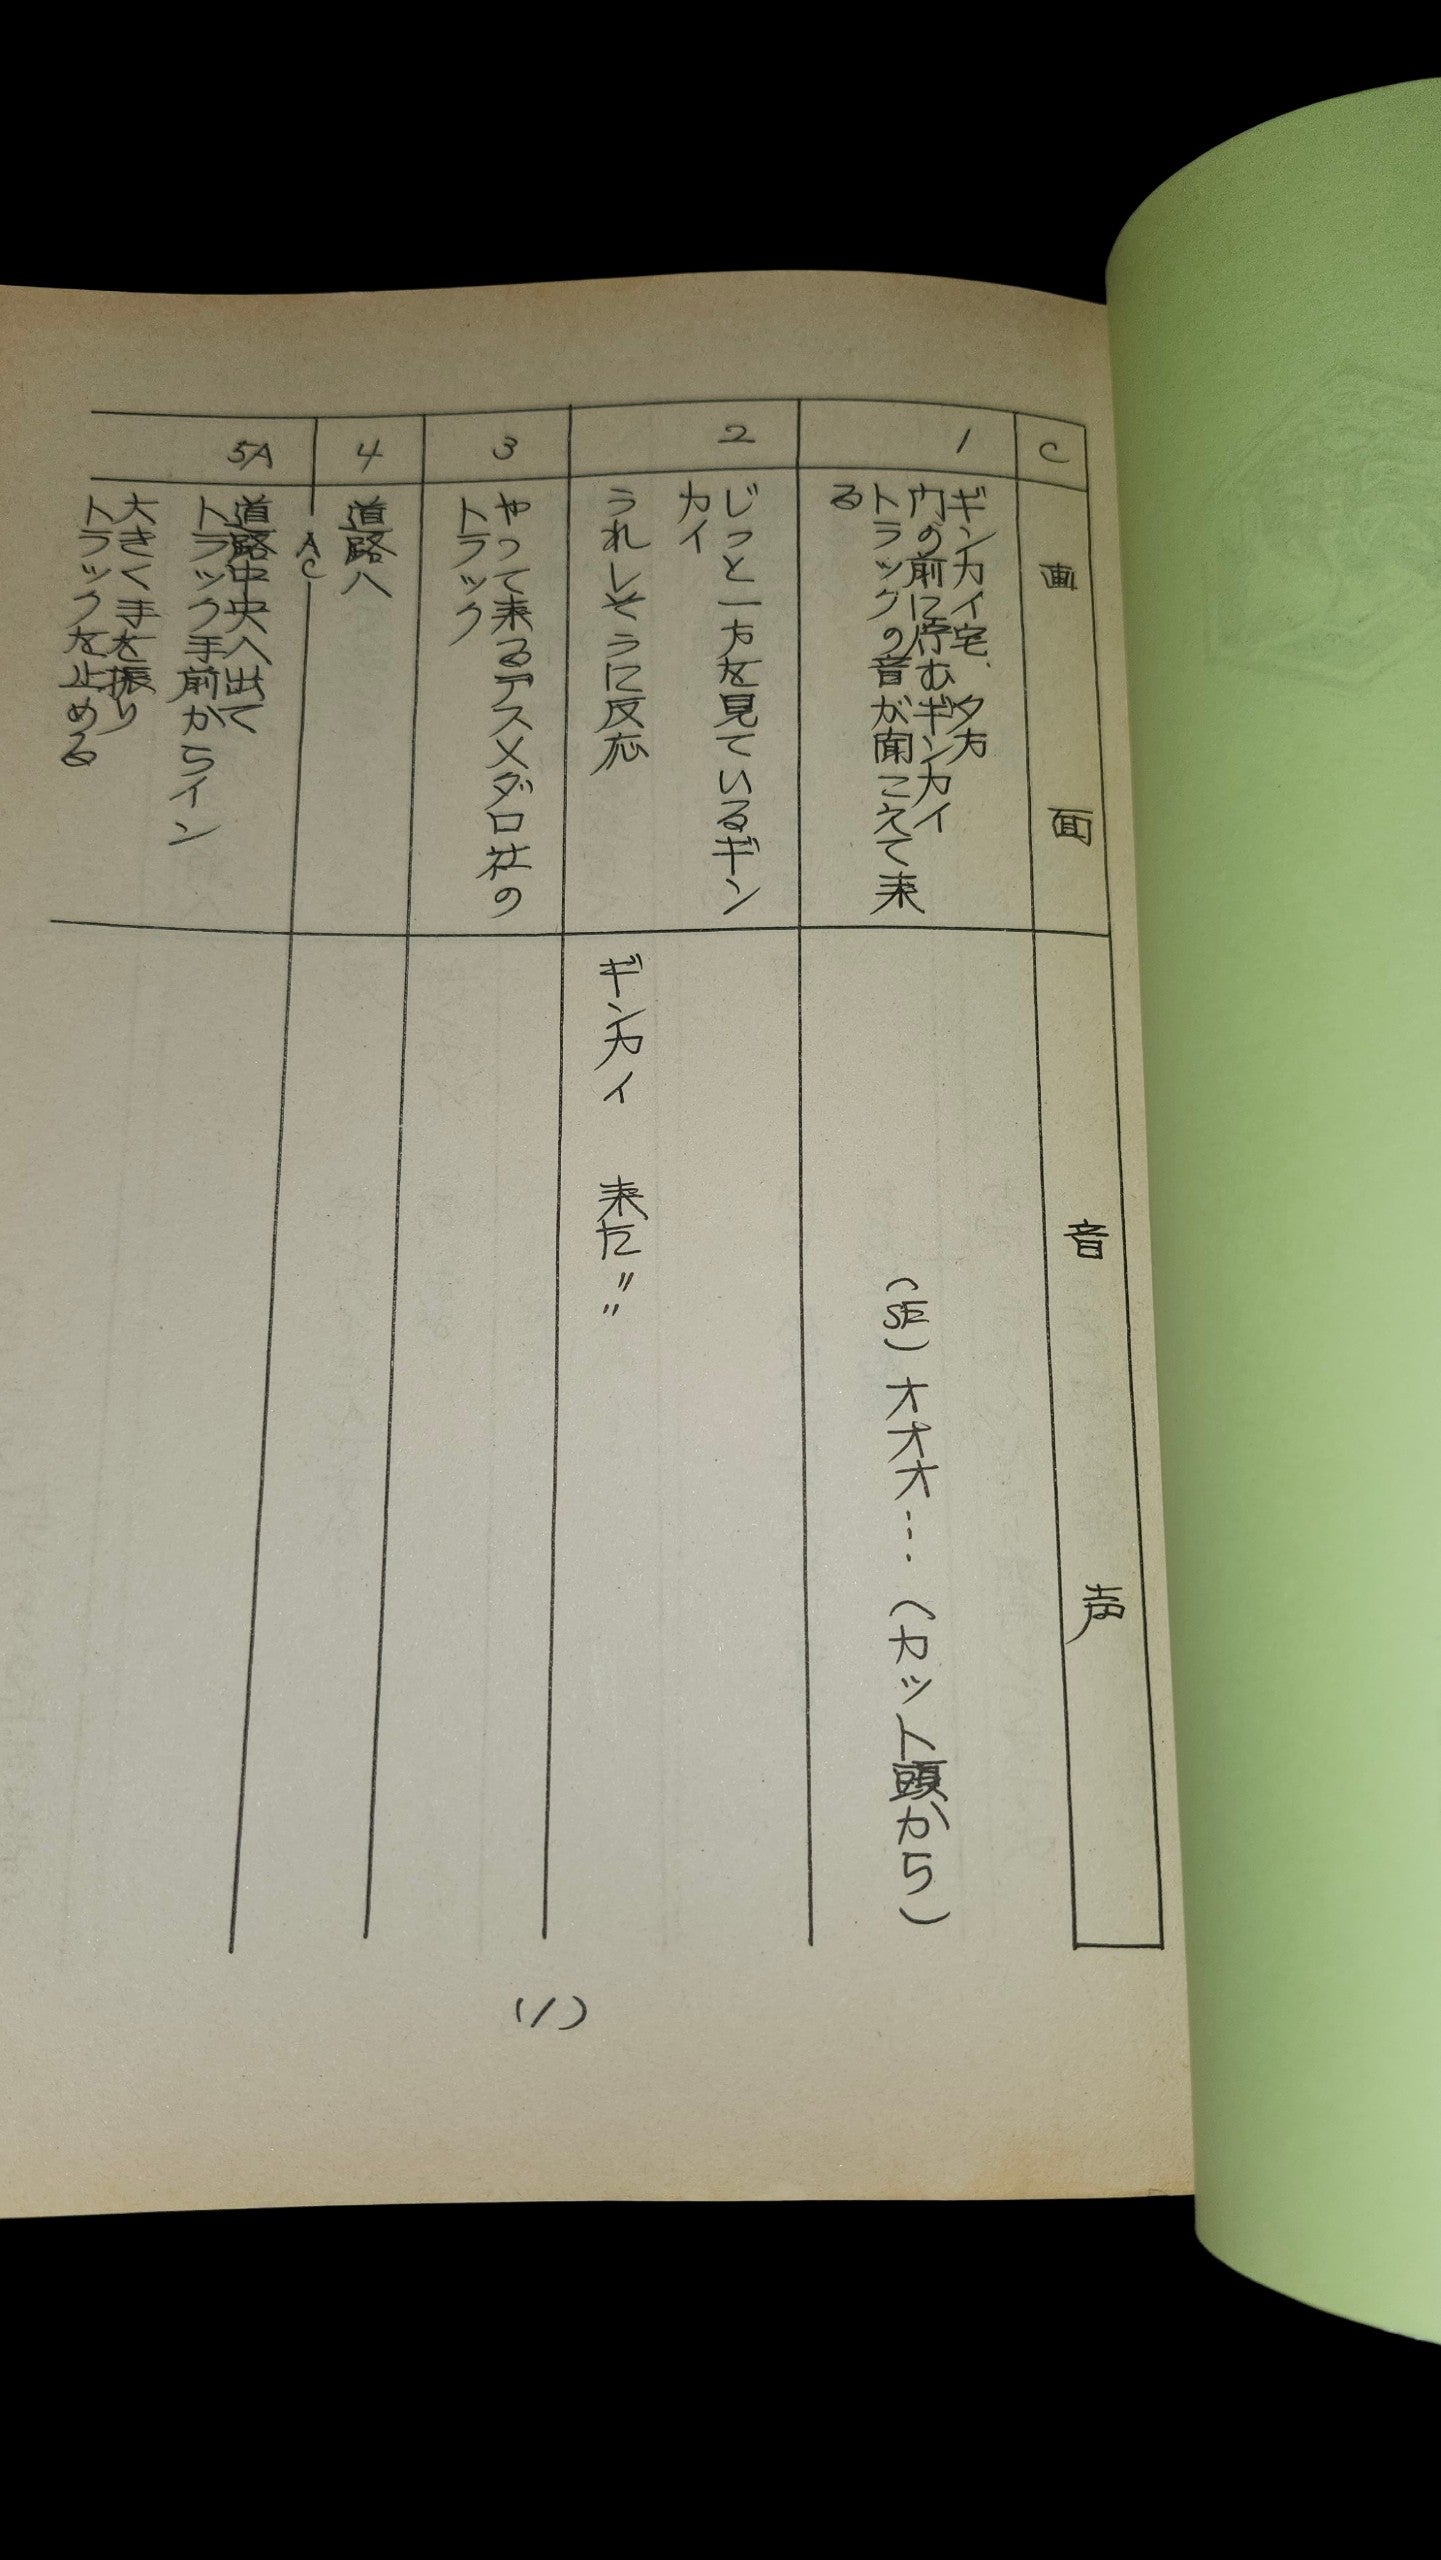 C
画面
音声
1
ギンカイ宅、夕方
門の前に佇むギンカイ
トラックの音が聞こえて来
る
(SE)オオオ…(カット頭から)
2
じっと一方を見ているギン
カイ
うれしそうに反応
ギンカイ 来た〃〃
3
やって来るデスメダロ社の
トラック
4
道路へ
AC
5A
道路中央へ出て
トラック手前からイン
大きく手を振り
トラックを止める
(1)